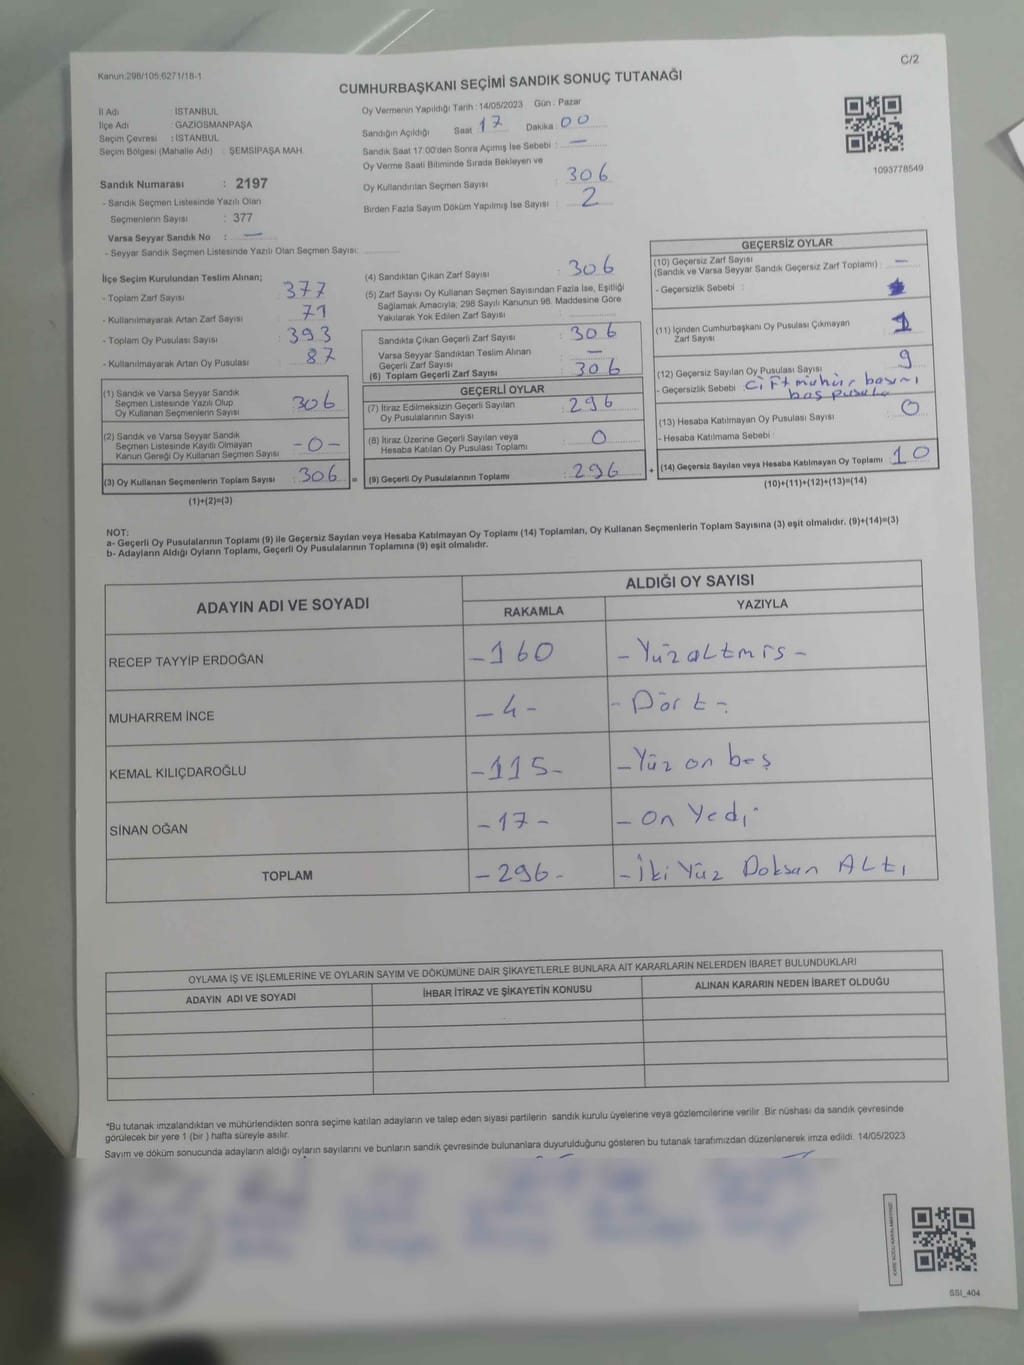 Kanun.298/105.6271/18-1
C/2
CUMHURBAŞKANI SEÇİMİ SANDIK SONUÇ TUTANAĞI
İl Adı : İSTANBUL
İlçe Adı : GAZİOSMANPAŞA
Seçim Çevresi : İSTANBUL
Seçim Bölgesi (Mahalle Adı) : ŞEMSİPAŞA MAH.
Sandık Numarası : 2197
- Sandık Seçmen Listesinde Yazılı Olan
Seçmenlerin Sayısı : 377
Varsa Seyyar Sandık No : —
- Seyyar Sandık Seçmen Listesinde Yazılı Olan Seçmen Sayısı:
Oy Vermenin Yapıldığı Tarih : 14/05/2023 Gün : Pazar
Sandığın Açıldığı Saat 17 Dakika : 00
Sandık Saat 17:00'den Sonra Açımış İse Sebebi : —
Oy Verme Saati Bitiminde Sırada Bekleyen ve
Oy Kullandırılan Seçmen Sayısı : 306
Birden Fazla Sayım Döküm Yapılmış İse Sayısı : 2
1093778549
İlçe Seçim Kurulundan Teslim Alınan;
- Toplam Zarf Sayısı : 377
- Kullanılmayarak Artan Zarf Sayısı : 71
- Toplam Oy Pusulası Sayısı : 393
- Kullanılmayarak Artan Oy Pusulası : 87
(1) Sandık ve Varsa Seyyar Sandık
Seçmen Listesinde Yazılı Olup
Oy Kullanan Seçmenlerin Sayısı : 306
(2) Sandık ve Varsa Seyyar Sandık
Seçmen Listesinde Kayıtlı Olmayan
Kanun Gereği Oy Kullanan Seçmen Sayısı : -0-
(3) Oy Kullanan Seçmenlerin Toplam Sayısı : 306
(1)+(2)=(3)
(4) Sandıktan Çıkan Zarf Sayısı : 306
(5) Zarf Sayısı Oy Kullanan Seçmen Sayısından Fazla İse, Eşitliği
Sağlamak Amacıyla; 298 Sayılı Kanunun 98. Maddesine Göre
Yakılarak Yok Edilen Zarf Sayısı :
Sandıkta Çıkan Geçerli Zarf Sayısı : 306
Varsa Seyyar Sandıktan Teslim Alınan
Geçerli Zarf Sayısı : —
(6) Toplam Geçerli Zarf Sayısı : 306
GEÇERLİ OYLAR
(7) İtiraz Edilmeksizin Geçerli Sayılan
Oy Pusulalarının Sayısı : 296
(8) İtiraz Üzerine Geçerli Sayılan veya
Hesaba Katılan Oy Pusulası Toplamı : 0
= (9) Geçerli Oy Pusulalarının Toplamı : 296
GEÇERSİZ OYLAR
(10) Geçersiz Zarf Sayısı
(Sandık ve Varsa Seyyar Sandık Geçersiz Zarf Toplamı) : —
- Geçersizlik Sebebi :
(11) İçinden Cumhurbaşkanı Oy Pusulası Çıkmayan
Zarf Sayısı : 1
(12) Geçersiz Sayılan Oy Pusulası Sayısı : 9
- Geçersizlik Sebebi : Çift mühür basımı
boş pusula
(13) Hesaba Katılmayan Oy Pusulası Sayısı : 0
- Hesaba Katılmama Sebebi :
+ (14) Geçersiz Sayılan veya Hesaba Katılmayan Oy Toplamı : 10
(10)+(11)+(12)+(13)=(14)
NOT:
a- Geçerli Oy Pusulalarının Toplamı (9) ile Geçersiz Sayılan veya Hesaba Katılmayan Oy Toplamı (14) Toplamları, Oy Kullanan Seçmenlerin Toplam Sayısına (3) eşit olmalıdır. (9)+(14)=(3)
b- Adayların Aldığı Oyların Toplamı, Geçerli Oy Pusulalarının Toplamına (9) eşit olmalıdır.
ADAYIN ADI VE SOYADI
ALDIĞI OY SAYISI
RAKAMLA YAZIYLA
RECEP TAYYİP ERDOĞAN -160 -Yüzaltmış-
MUHARREM İNCE -4- -Dört-
KEMAL KILIÇDAROĞLU -115- -Yüz on beş
SİNAN OĞAN -17- -On Yedi-
TOPLAM -296- -İki Yüz Doksan Altı
OYLAMA İŞ VE İŞLEMLERİNE VE OYLARIN SAYIM VE DÖKÜMÜNE DAİR ŞİKAYETLERLE BUNLARA AİT KARARLARIN NELERDEN İBARET BULUNDUKLARI
ADAYIN ADI VE SOYADI İHBAR İTİRAZ VE ŞİKAYETİN KONUSU ALINAN KARARIN NEDEN İBARET OLDUĞU
*Bu tutanak imzalandıktan ve mühürlendikten sonra seçime katılan adayların ve talep eden siyasi partilerin sandık kurulu üyelerine veya gözlemcilerine verilir. Bir nüshası da sandık çevresinde
görülecek bir yere 1 (bir ) hafta süreyle asılır.
Sayım ve döküm sonucunda adayların aldığı oyların sayılarını ve bunların sandık çevresinde bulunanlara duyurulduğunu gösteren bu tutanak tarafımızdan düzenlenerek imza edildi. 14/05/2023
SSI_404